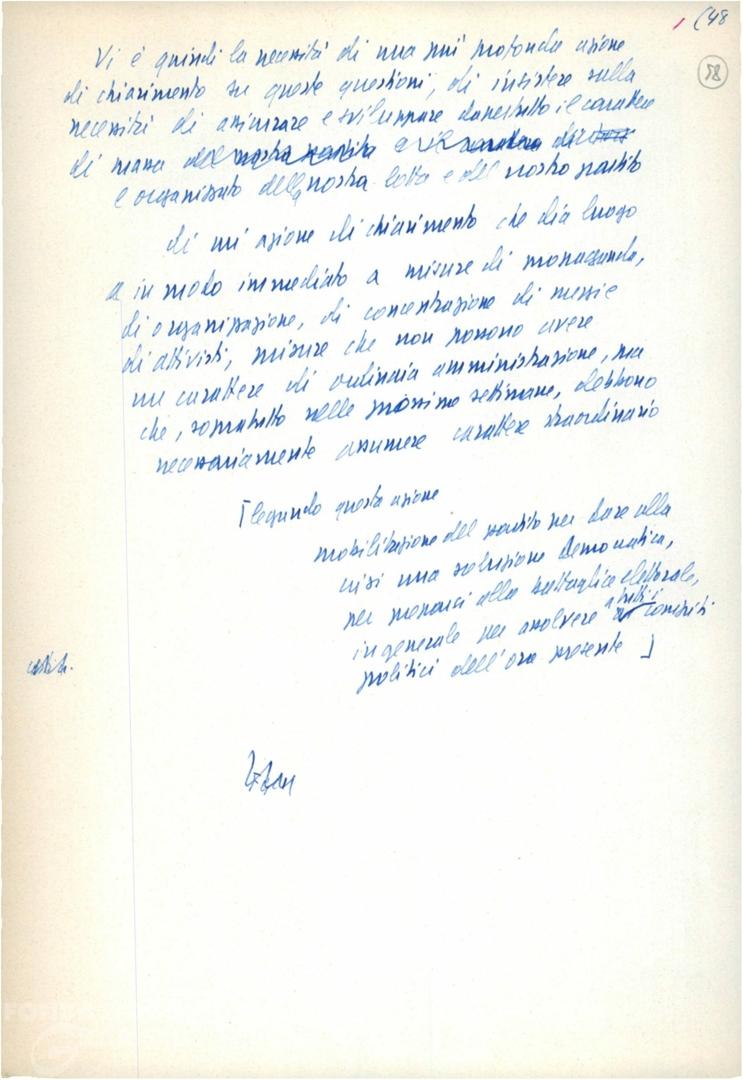 (48
58
Vi è quindi la necessità di una più profonda azione
di chiarimento su queste questioni, di insistere sulla
necessità di assicurare e sviluppare dappertutto il carattere
di massa del nostro partito e il carattere di
e organizzato della nostra lotta e del nostro partito
di un'azione di chiarimento che dia luogo
in modo immediato a misure di propaganda,
di organizzazione, di concentrazione di mezzi e
di attivisti, misure che non possono avere
un carattere di ordinaria amministrazione, ma
che, soprattutto nelle prossime settimane, debbono
necessariamente assumere carattere straordinario
[legando questa azione
mobilitazione del partito per dare alla
crisi una soluzione democratica,
per prepararci alla battaglia elettorale,
in generale per assolvere a tutti i compiti
politici dell'ora presente]